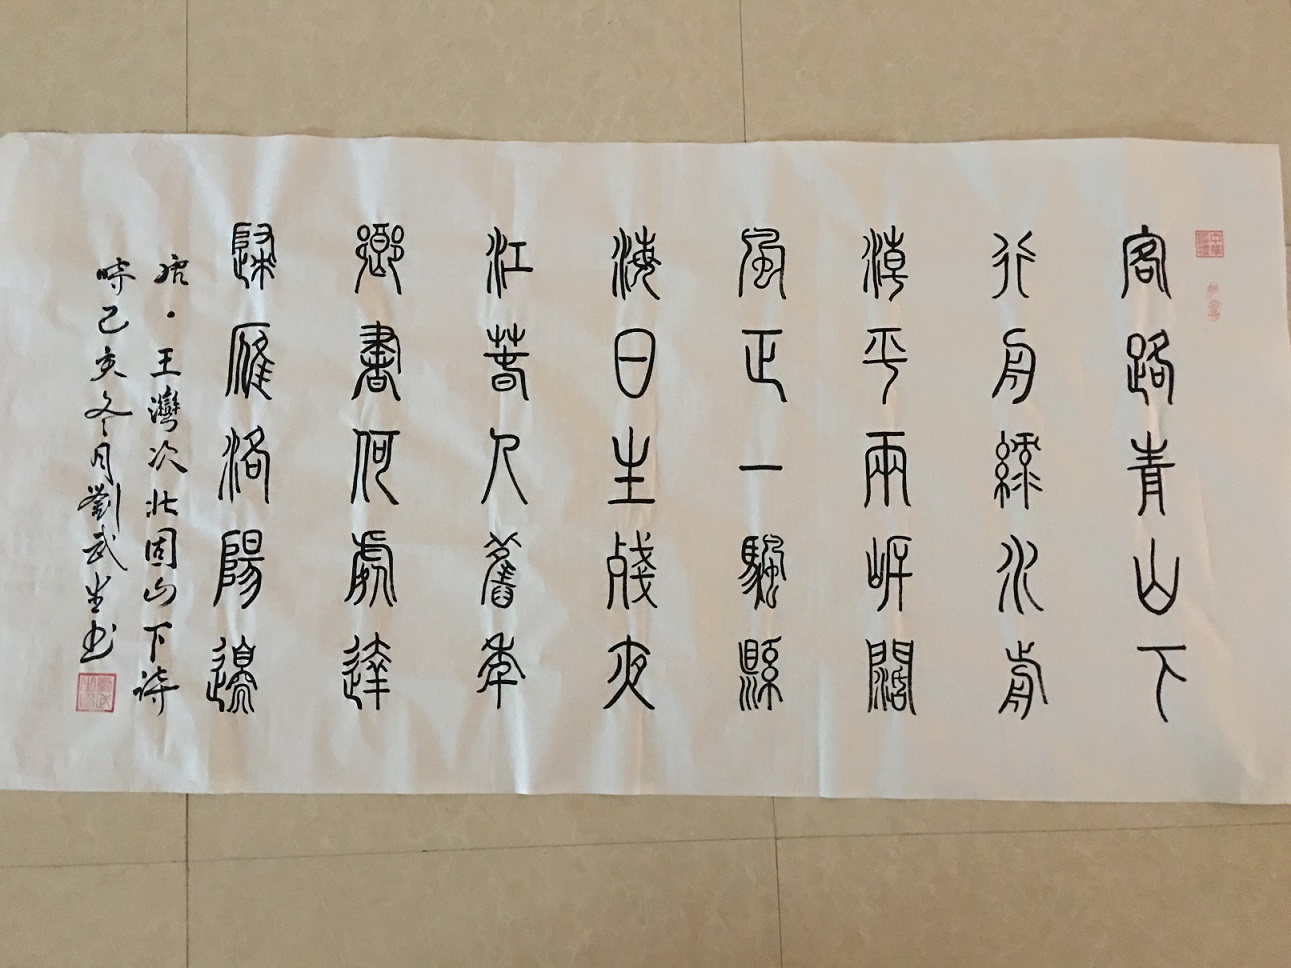 客路青山下
行舟綠水前
潮平兩岸闊
風正一颿縣
海日生殘夜
江萅人舊年
鄉書何處達
歸雁洛陽邊
唐·王灣次北固山下詩
時己亥冬月劉武生书